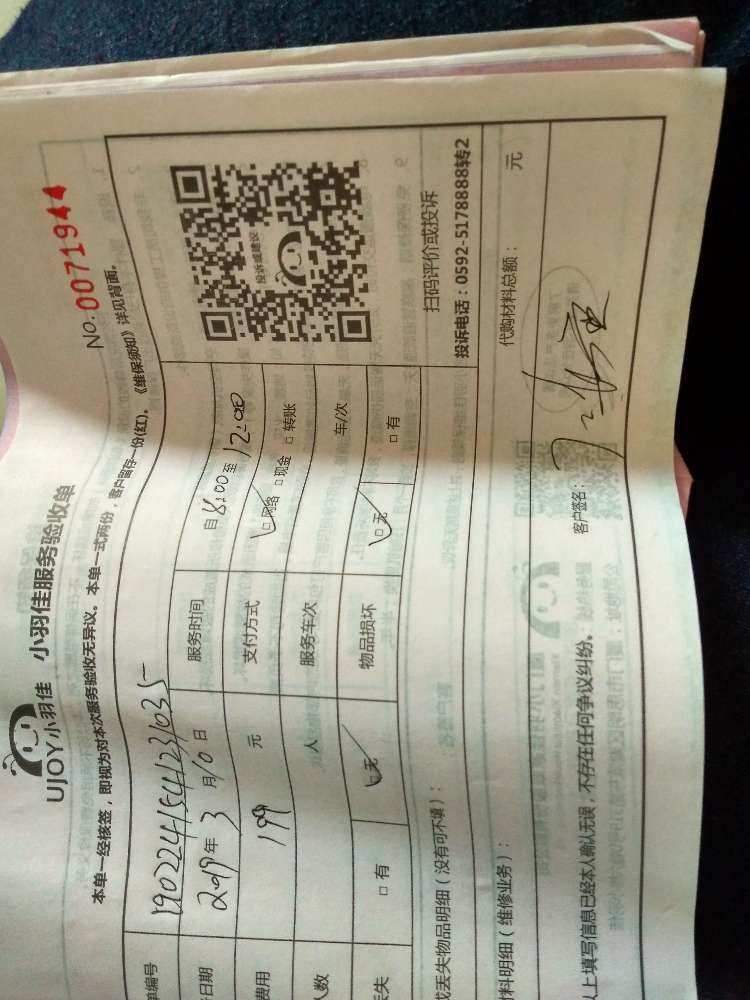 UJOY小羽佳 小羽佳服务验收单
No. 0071944
本单一经核签，即视为对本次服务验收无异议。本单一式两份，客户留存一份(红)。《维保须知》详见背面。
单编号 190224154123035
日期 2019年3月10日 服务时间 自8:00至12:00
费用 199 元 支付方式 □网络 □现金 □转账
人数 人 服务车次 车/次
丢失 □有 □无 物品损坏 □无 □有
投诉或建议
扫码评价或投诉
投诉电话：0592-5178888转2
或丢失物品明细（没有可不填）：
材料明细（维修业务）： 代购材料总额： 元
以上填写信息已经本人确认无误，不存在任何争议纠纷。 客户签名：